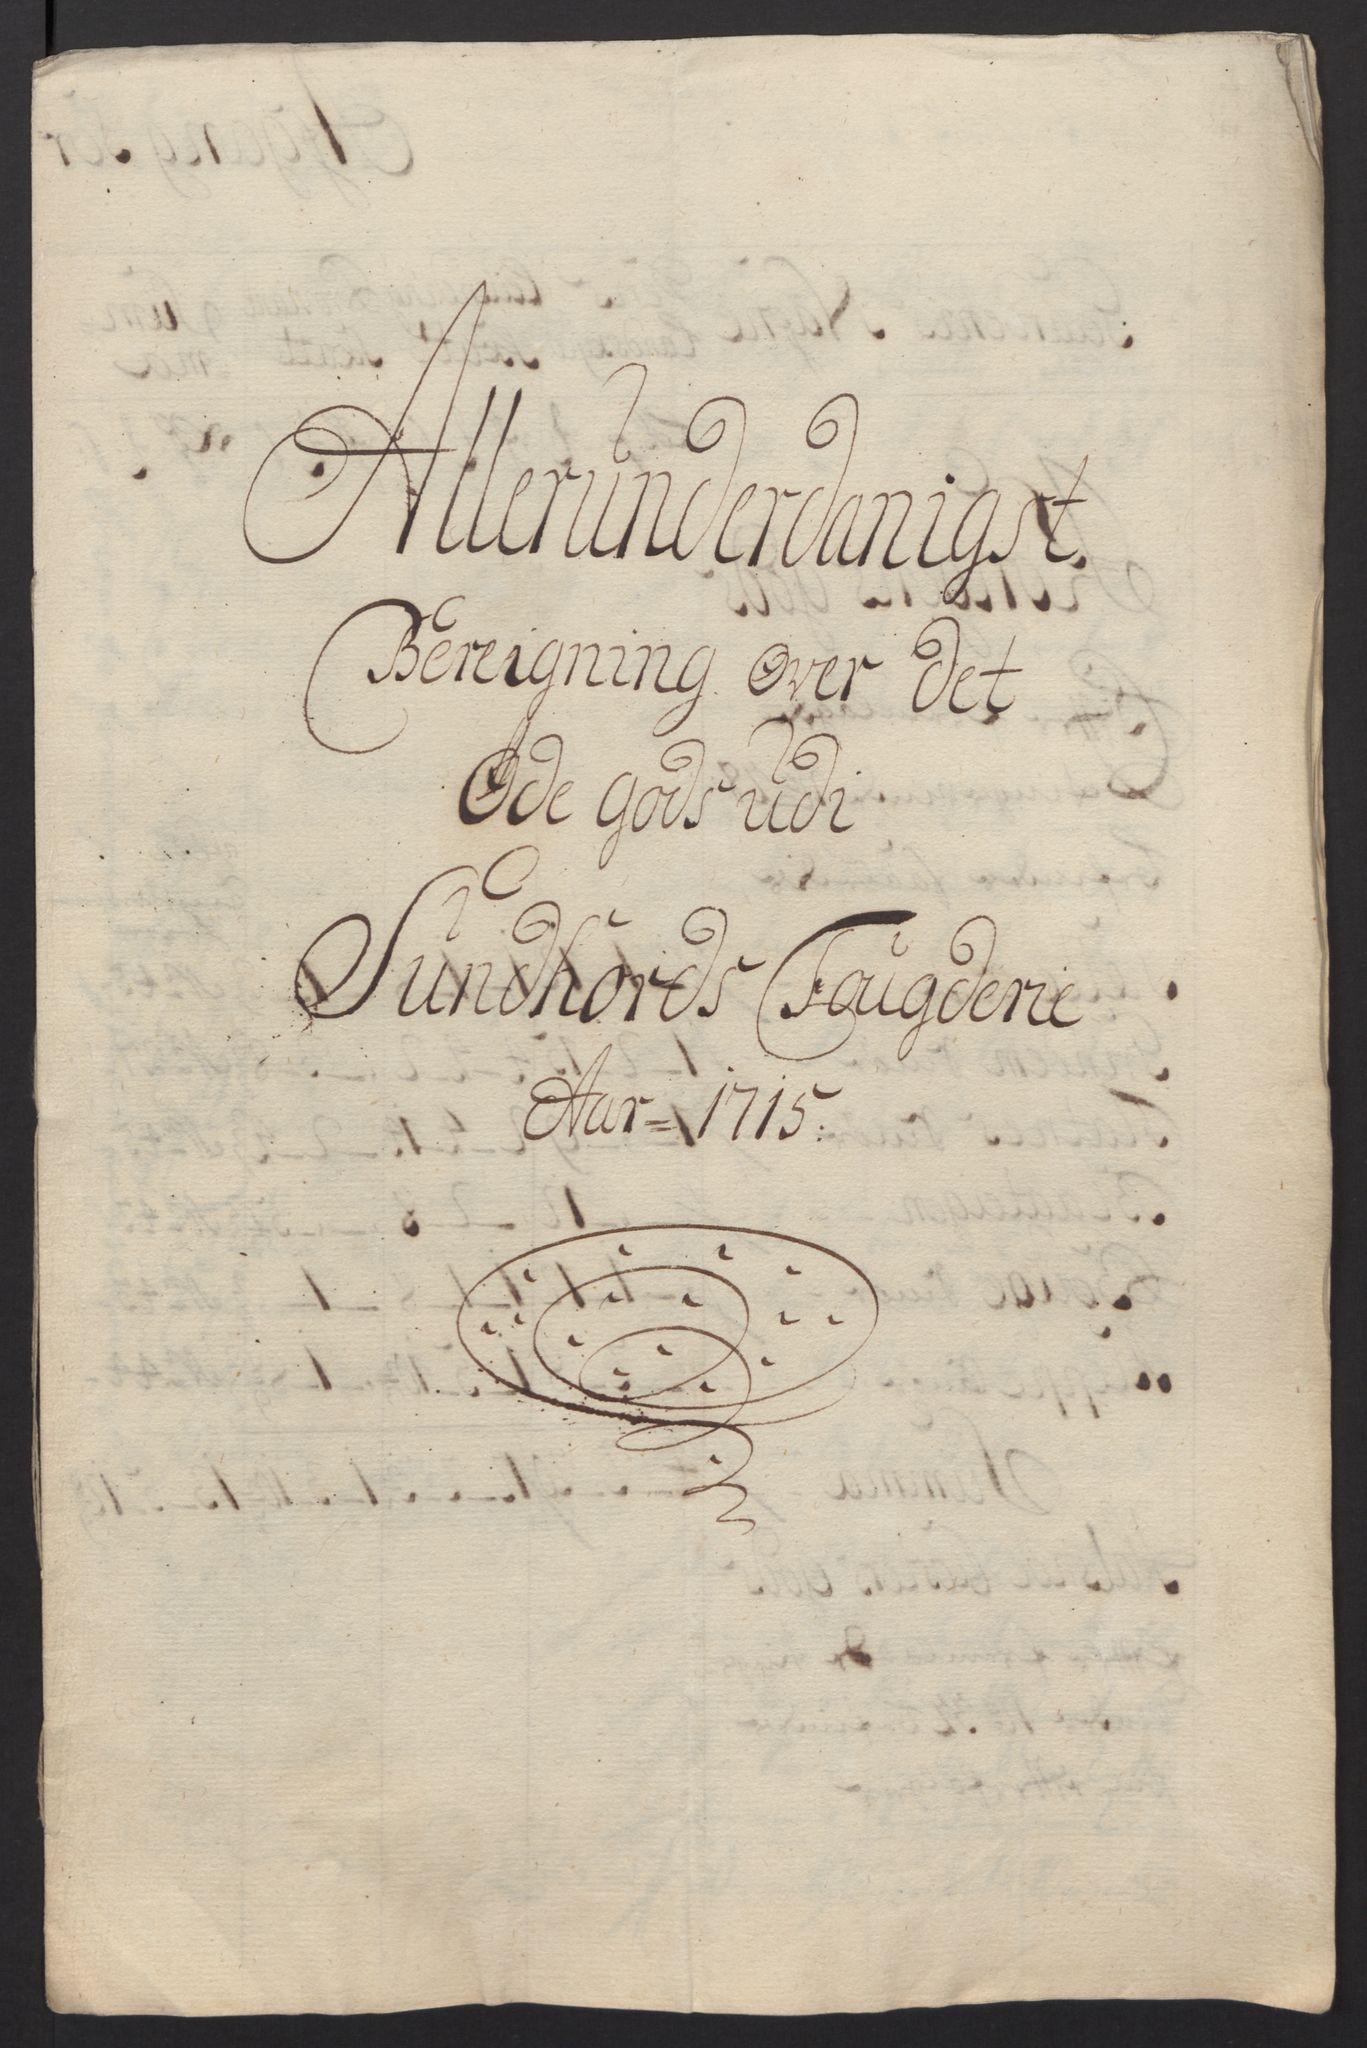 Allerunderdanigst
Bereigning over det
Øde gods udi
Sundhords Fougderie
Aar = 1715: